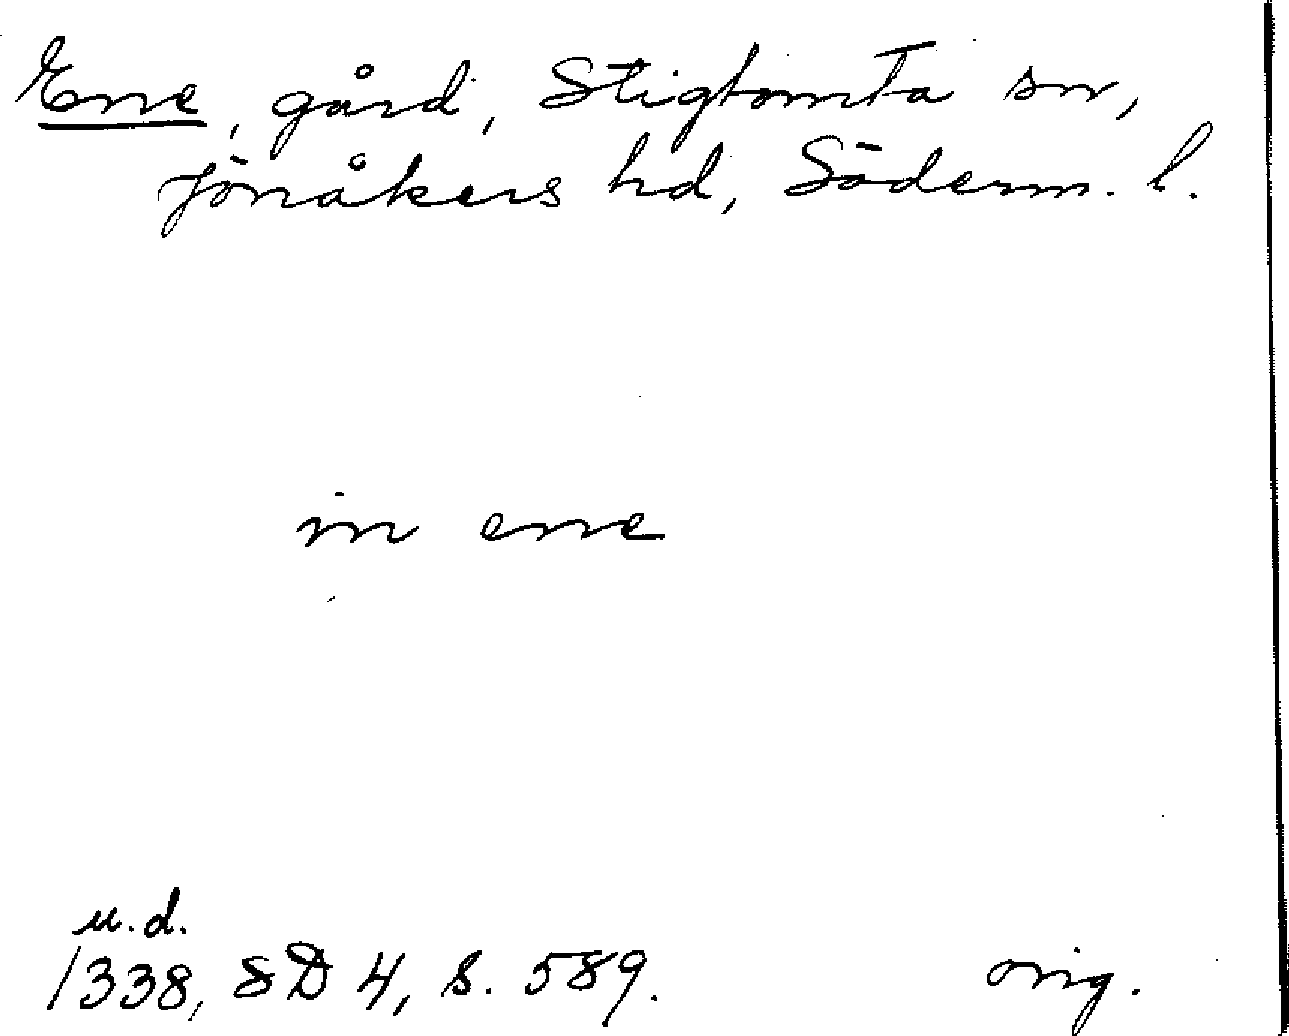 Ene, gård, Stigtomta sn,
Jönåkers hd, Söderm. l.
in ene
u.d.
1338, SD 4, s. 589. orig.